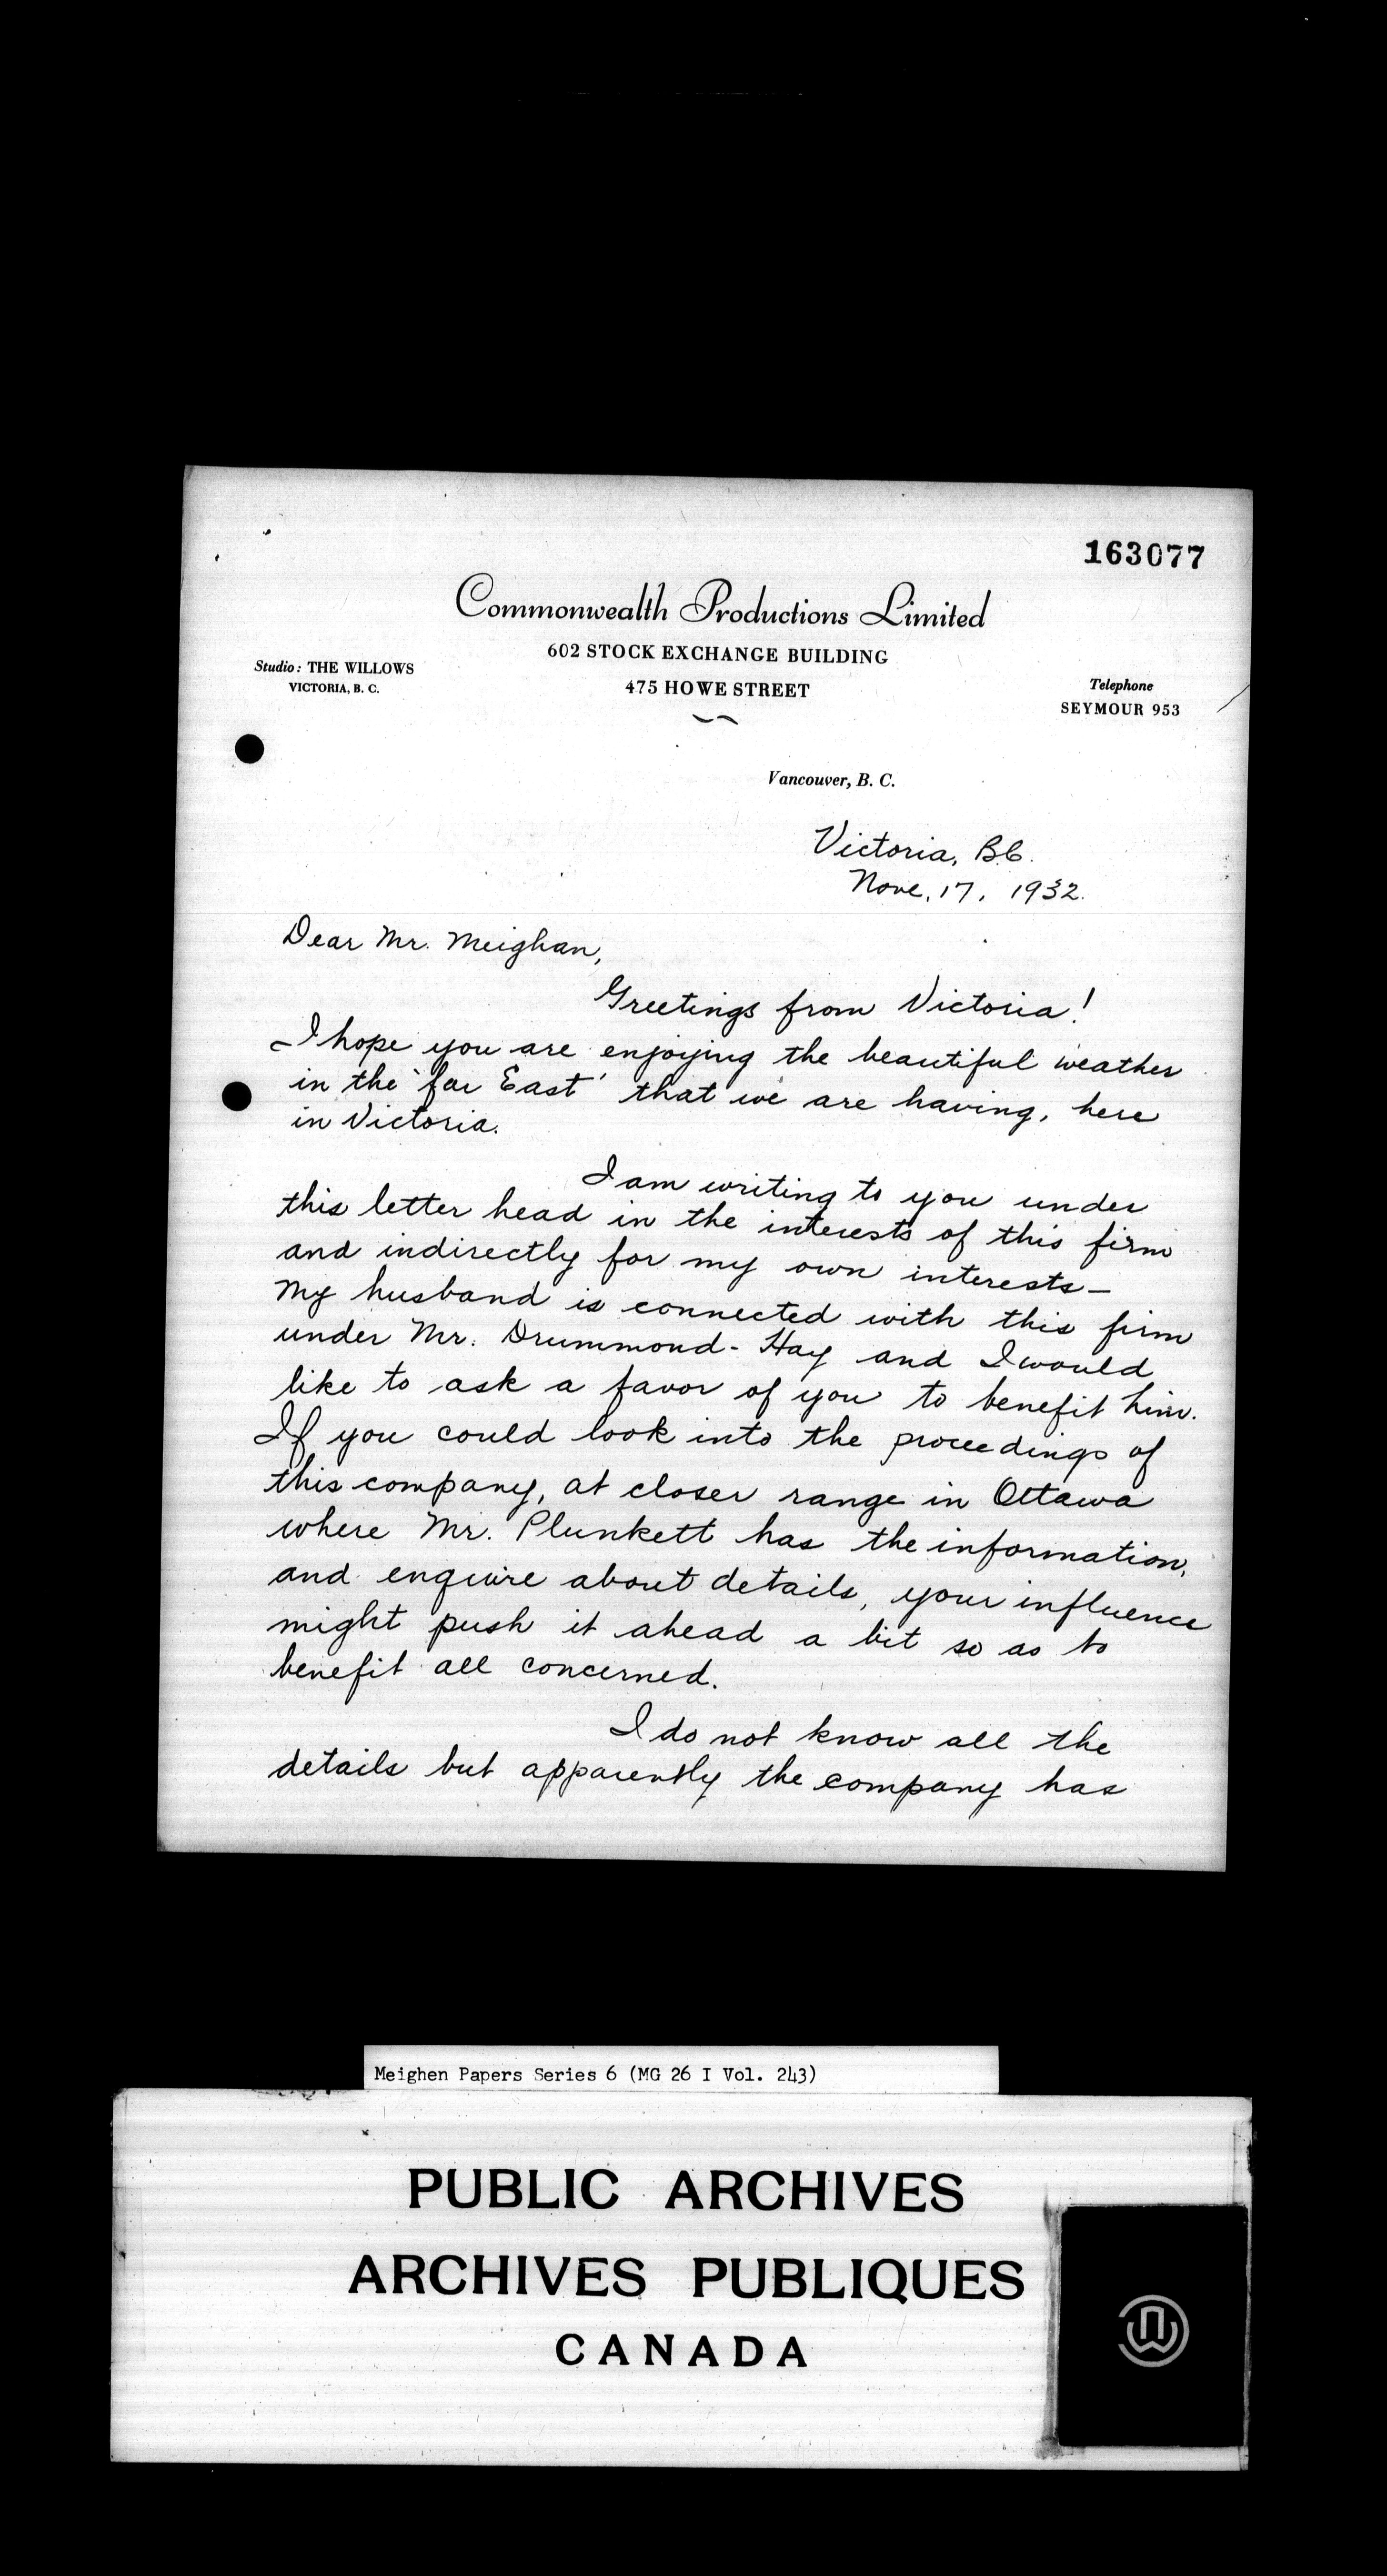 163077
Commonwealth Productions Limited
602 STOCK EXCHANGE BUILDING
475 HOWE STREET
Studio: THE WILLOWS
VICTORIA, B. C.
Telephone
SEYMOUR 953
Vancouver, B. C.
Victoria, B.C.
Nove, 17, 1932.
Dear Mr. Meighan,
Greetings from Victoria!
I hope you are enjoying the beautiful weather
in the 'far East' that we are having, here
in Victoria.
I am writing to you under
this letter head in the interests of this firm
and indirectly for my own interests—
My husband is connected with this firm
under Mr. Drummond-Hay and I would
like to ask a favor of you to benefit him.
If you could look into the proceedings of
this company, at closer range in Ottawa
where Mr. Plunkett has the information,
and enquire about details, your influence
might push it ahead a bit so as to
benefit all concerned.
I do not know all the
details but apparently the company has
Meighen Papers Series 6 (MG 26 I Vol. 243)
PUBLIC ARCHIVES
ARCHIVES PUBLIQUES
CANADA